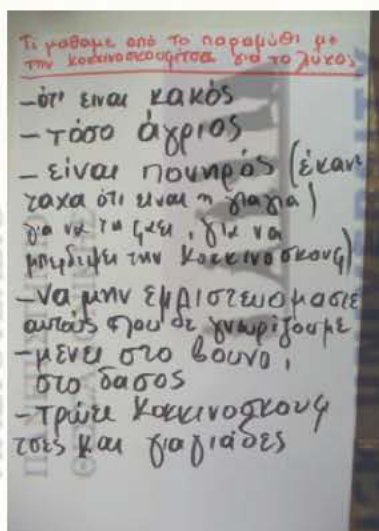 Τι μάθαμε από το παραμύθι με
την κοκκινοσκουφίτσα για το λύκος
-ότι ειναι κακός
-τόσο άγριος
-είναι πονηρός (έκανε
ταχα ότι ειναι η γιαγια)
για να τη φαει, για να
μπερδεψει την Κοκκινοσκουφ)
-να μην εμπιστευομαστε
αυτούς που δε γνωρίζουμε
-μένει στο βουνο,
στο δασος
-τρώει Κοκκινοσκουφ
τσες και γιαγιάδες